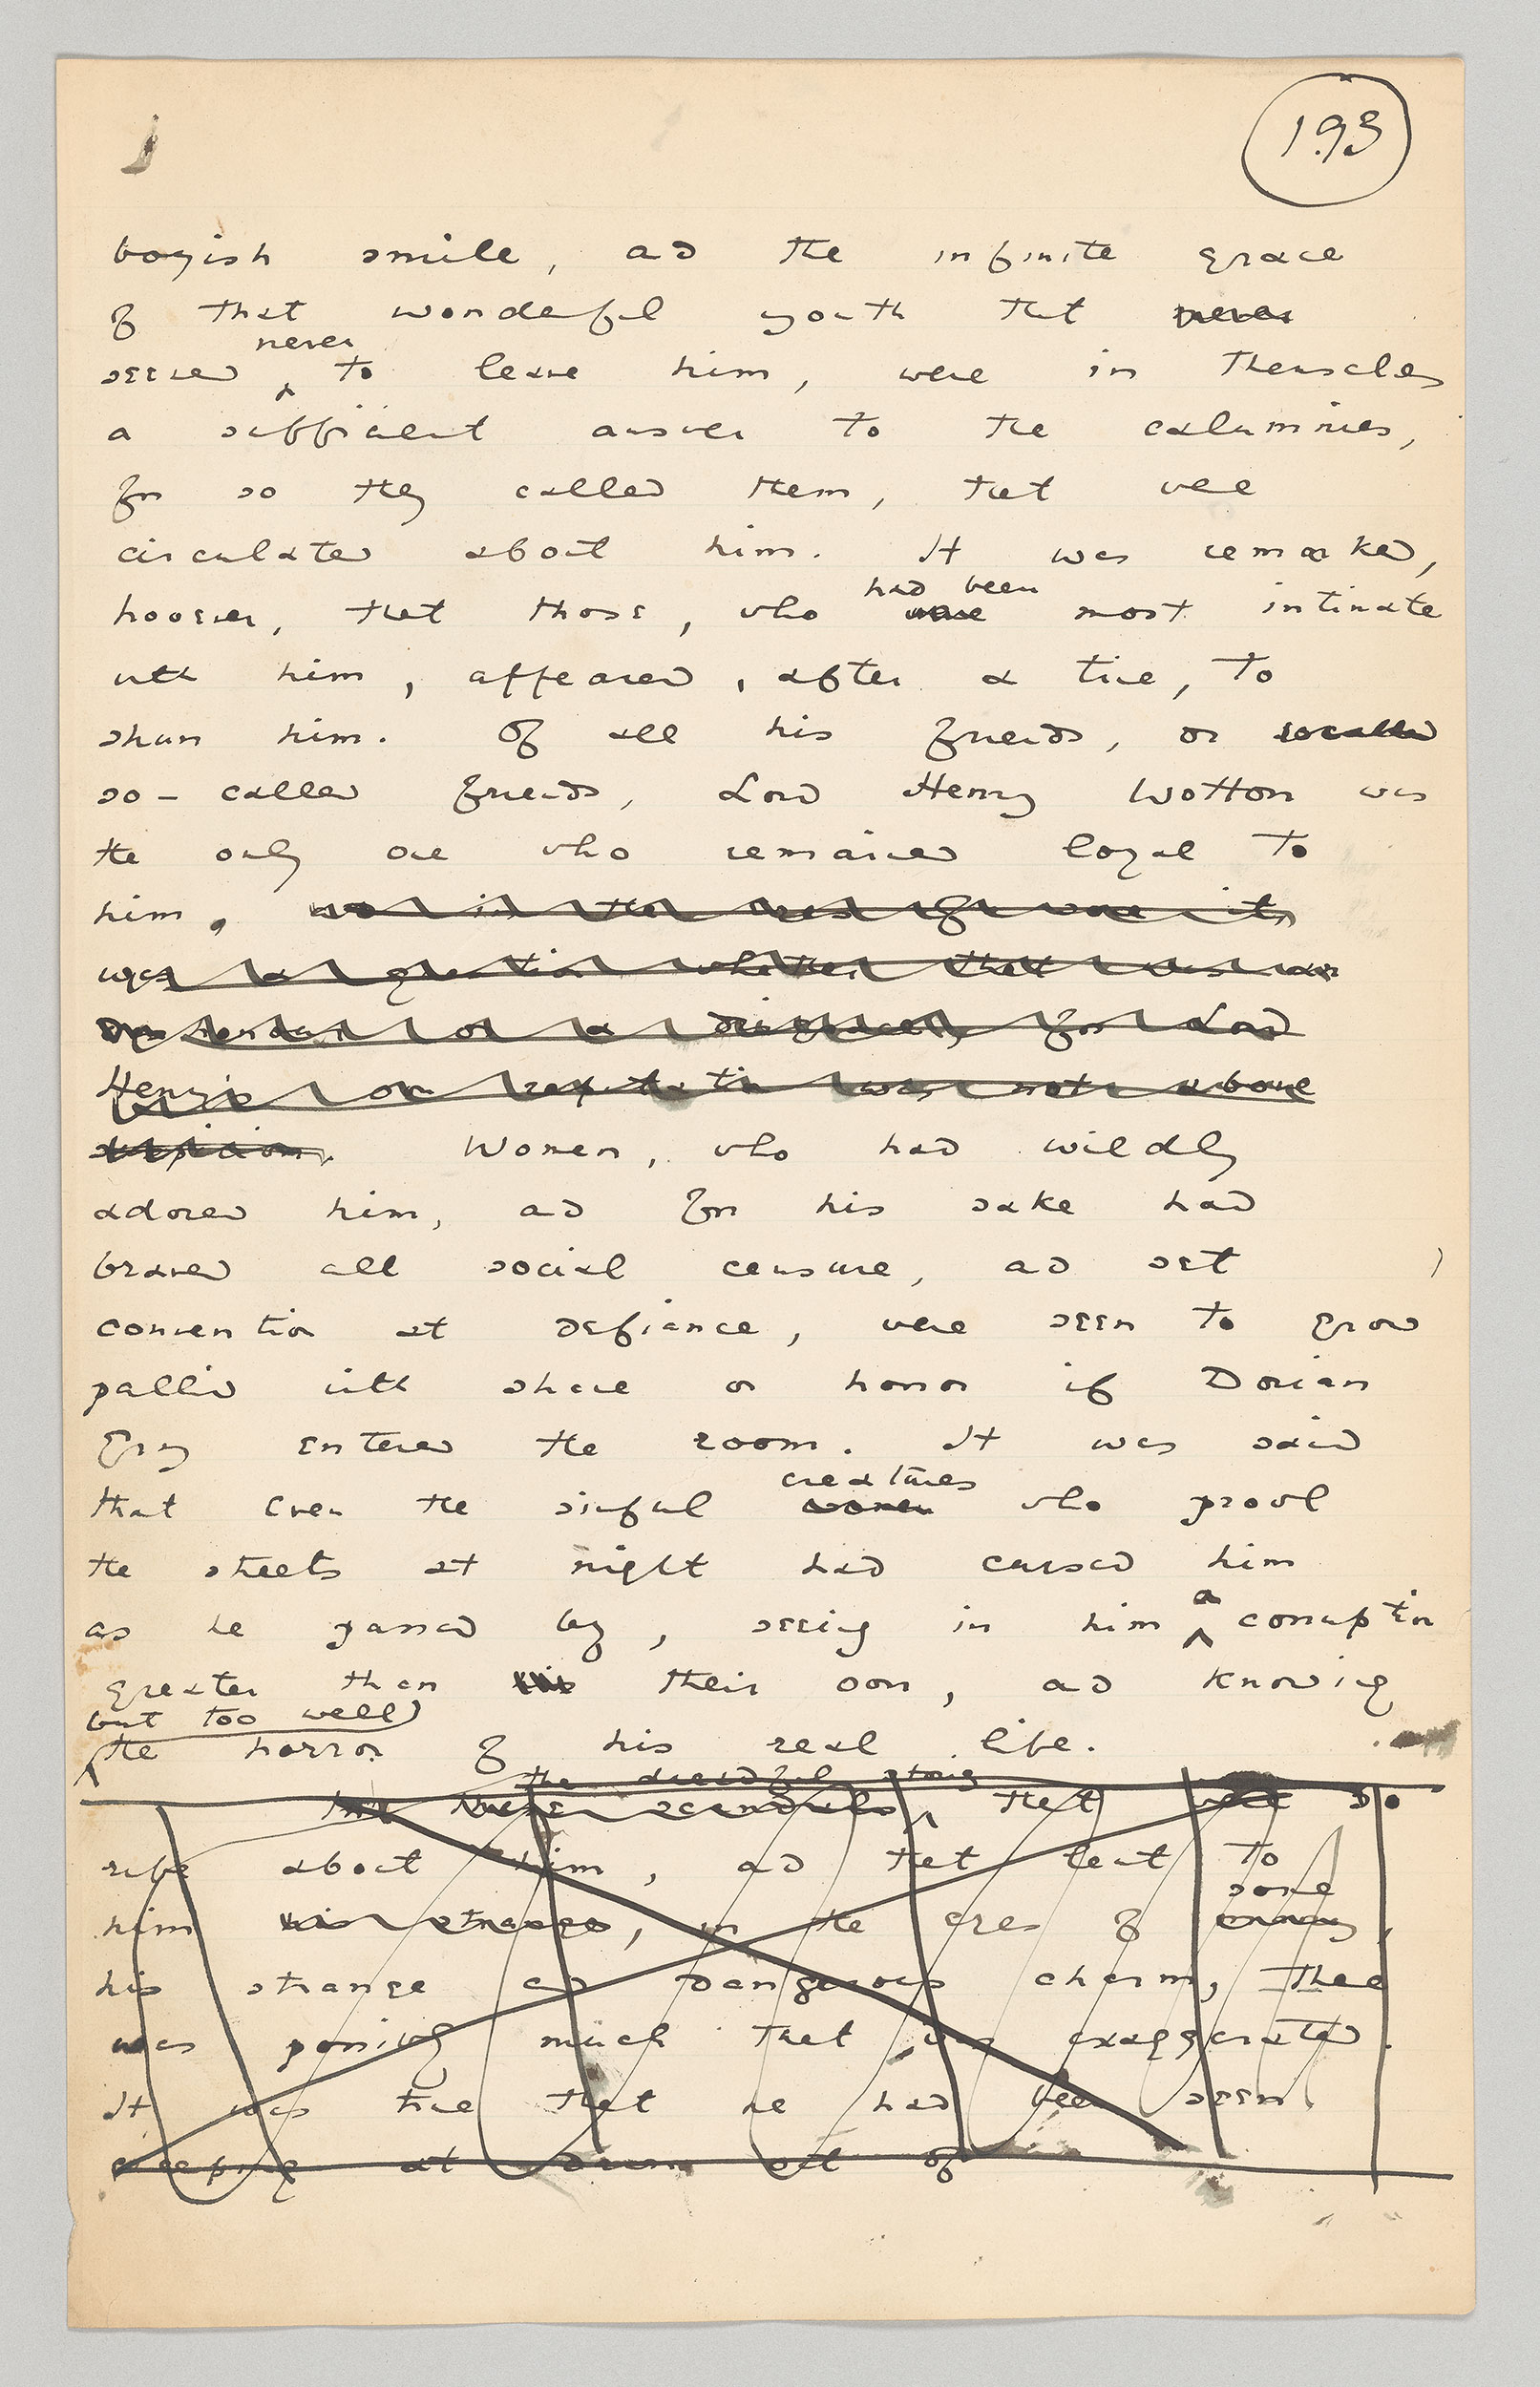 193
boyish smile, and the infinite grace
of that wonderful youth that never
never
seemed to leave him, were in themselves
a sufficient answer to the calumnies,
for so they called them, that were
circulated about him. It was remarked,
had been
however, that those, who were most intimate
with him, appeared, after a time, to
shun him. Of all his friends, or so called
so-called friends, Lord Henry Wotton was
the only one who remained loyal to
him, in the eyes of some it
was a question whether that was an
or a disgrace, for Lord
Henry's own reputation was not above
suspicion. Women, who had wildly
adored him, and for his sake had
braved all social censure, and set
convention at defiance, were seen to grow
pallid with shame or horror if Dorian
Gray entered the room. It was said
creatures
that even the sinful women who prowl
the streets at night had cursed him
a
as he passed by, seeing in him corruption
greater than his their own, and knowing
but too well
the horror of his real life.
the dreadful stories
these scandals that were so
rife about him, and that lent to
some
him his strange, in the eyes of many,
his strange and dangerous charm, there
was possibly much that was exaggerated.
It was true that he had been seen
creeping at dawn out of